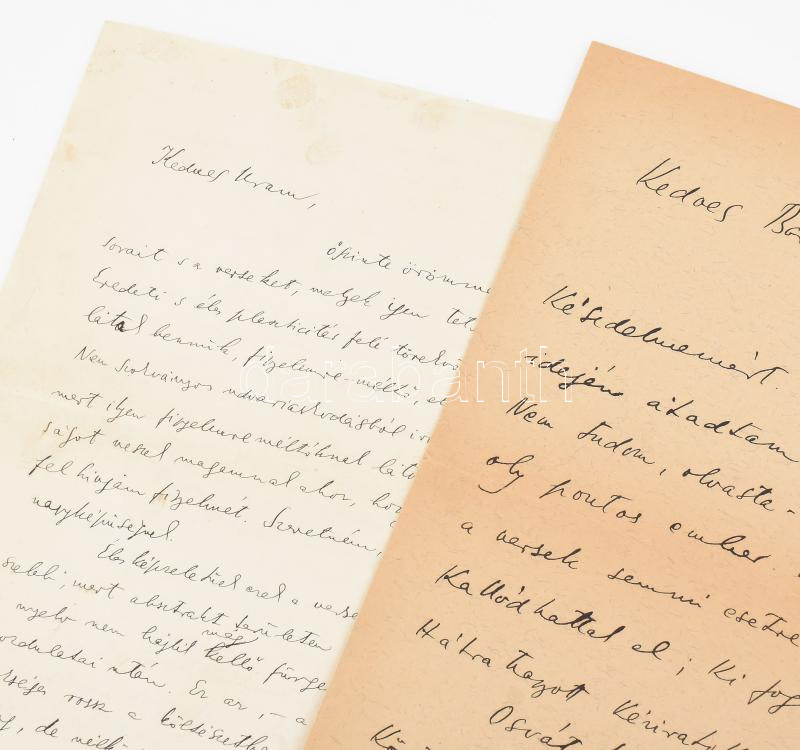 Kedves Uram,
őszinte örömme
sorait s a verseket, melyek igen tets
Eredeti s éles plaszticitás felé törekvő
látok bennük, figyelemre-méltó, el
Nem szokványos udvariaskodásból ir
mert ilyen figyelemre méltóknak láto
ságot veszek magamnak ahoz, hog
felhívjam figyelmét. Szeretném,
nagyképűségnek.
Éles képzeletűek ezek a verse
szebbi, mert absztrakt területen
még
nyelv nem hajlik kellő fürge
ordulatai után. Ez az, – a
rossz a
de
Kedves Ba
Késedelmemért.
idején átadtam
Nem tudom, olvasta-
oly pontos ember.
a versek semmi esetre
Kallódhattak el; ki fog
Hátra hagyott Kézirat
Osvát
darabanth